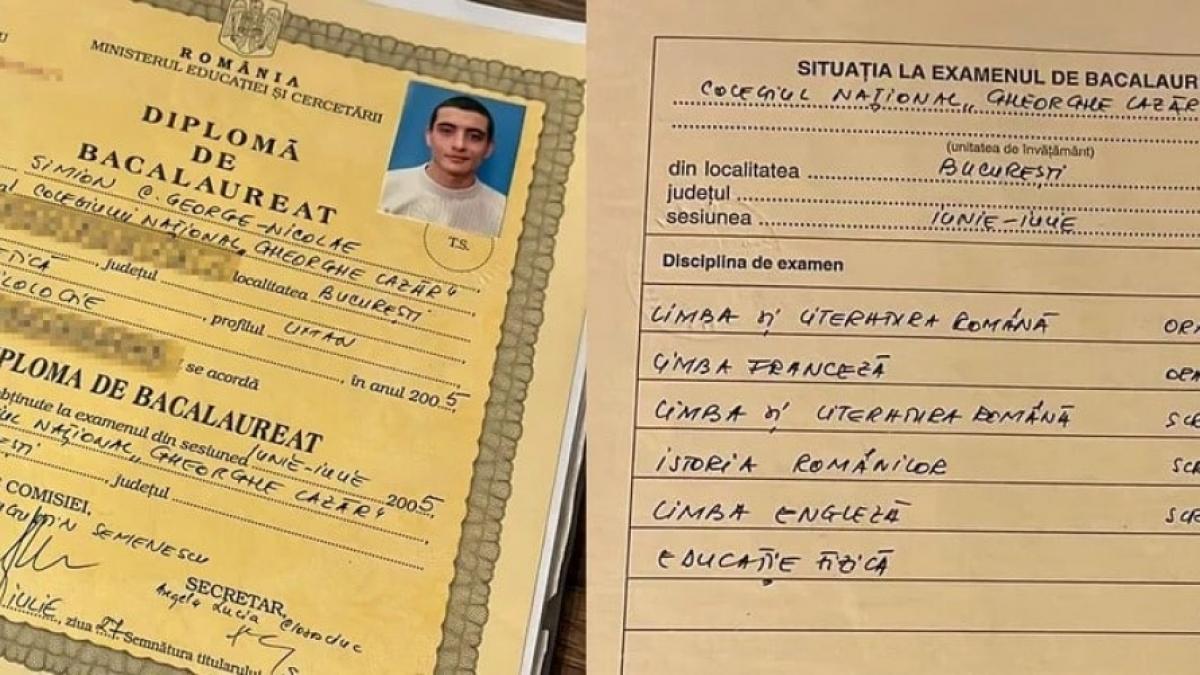 ROMÂNIA
MINISTERUL EDUCAȚIEI ȘI CERCETĂRII
DIPLOMĂ
DE
BACALAUREAT
SIMION C. GEORGE-NICOLAE
COLEGIULUI NAȚIONAL „GHEORGHE LAZĂR"
, județul localitatea BUCUREȘTI
, profilul UMAN
, se acordă , în anul 2005,
PLOMA DE BACALAUREAT
obținute la examenul din sesiunea IUNIE-IULIE 2005,
NAȚIONAL „GHEORGHE LAZĂR"
, județul
COMISIEI,
SEMENESCU
SECRETAR,
Angela Lucia
IULIE, ziua 27 Semnătura titularului
T.S.
SITUAȚIA LA EXAMENUL DE BACALAUR
COLEGIUL NAȚIONAL „GHEORGHE LAZĂR
(unitatea de învățământ)
din localitatea BUCUREȘTI
județul
sesiunea IUNIE-IULIE
Disciplina de examen
LIMBA ȘI LITERATURA ROMÂNĂ
LIMBA FRANCEZĂ
LIMBA ȘI LITERATURA ROMÂNĂ
ISTORIA ROMÂNILOR
LIMBA ENGLEZĂ
EDUCAȚIE FIZICĂ